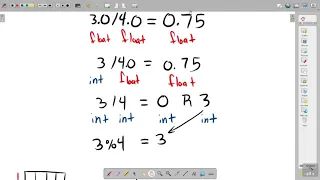 3.0/4.0 = 0.75
float float float
3/4.0 = 0.75
int float float
3/4 = 0 R 3
int int int int
3%4 = 3